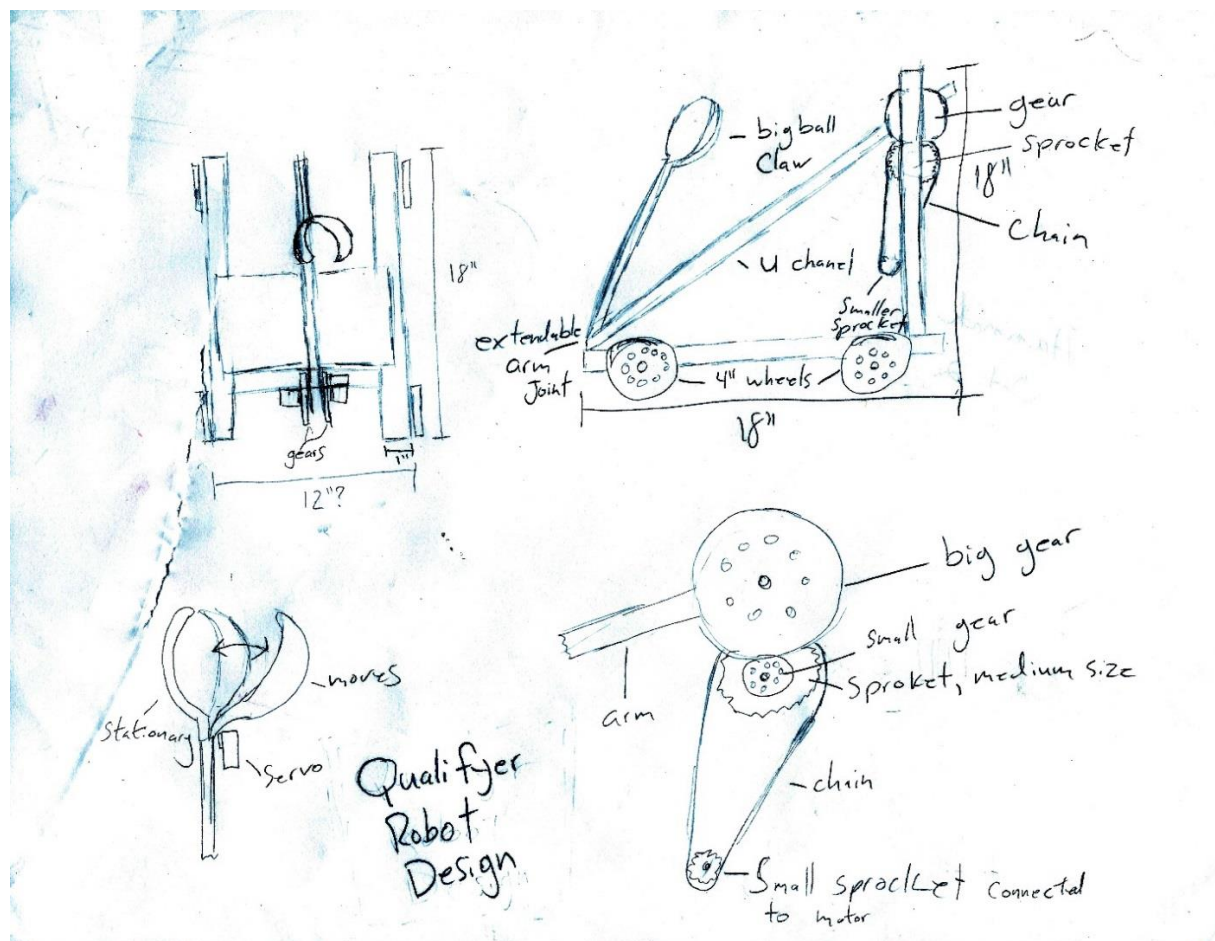 18"
gears
1"
12"?
big ball
claw
gear
sprocket
18"
chain
U chanel
Smaller
sprocket
extendable
arm
joint
4" wheels
18"
moves
Stationary
servo
Qualifyer
Robot
Design
big gear
small gear
sproket, medium size
arm
chain
Small sprocket connected
to motor